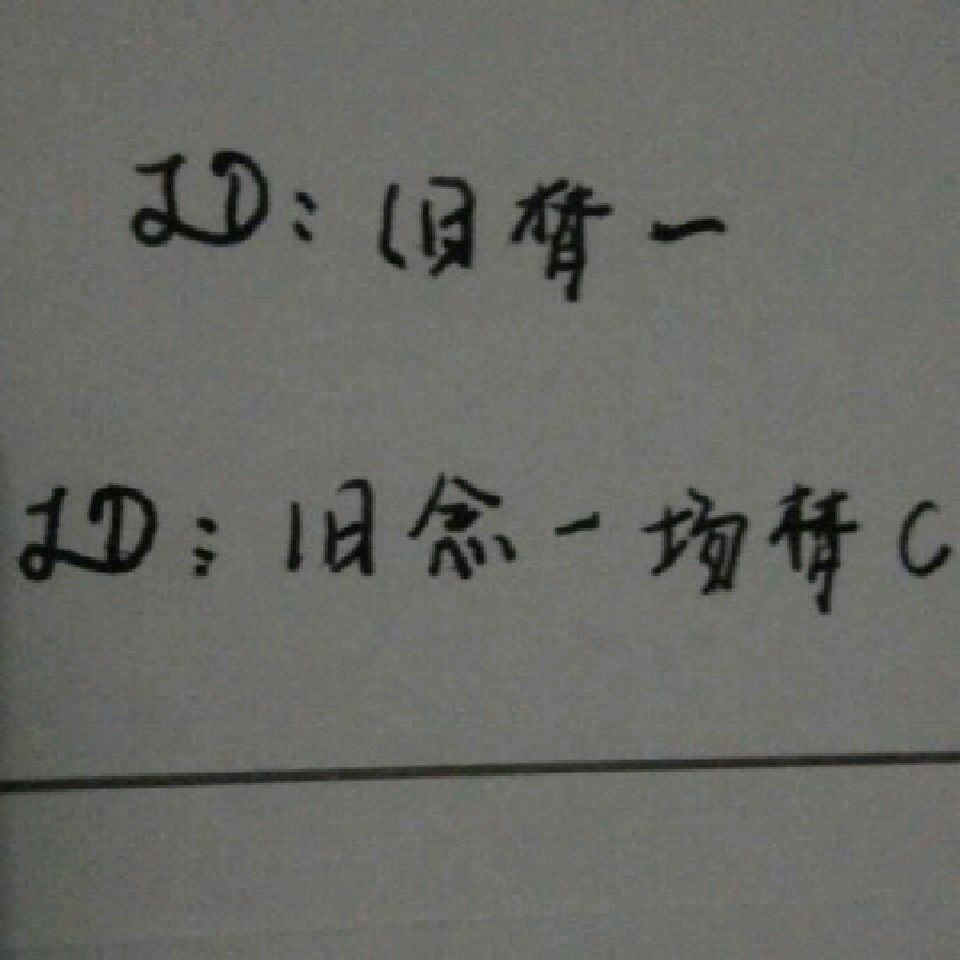 ID:旧情一
ID:旧念一场情C